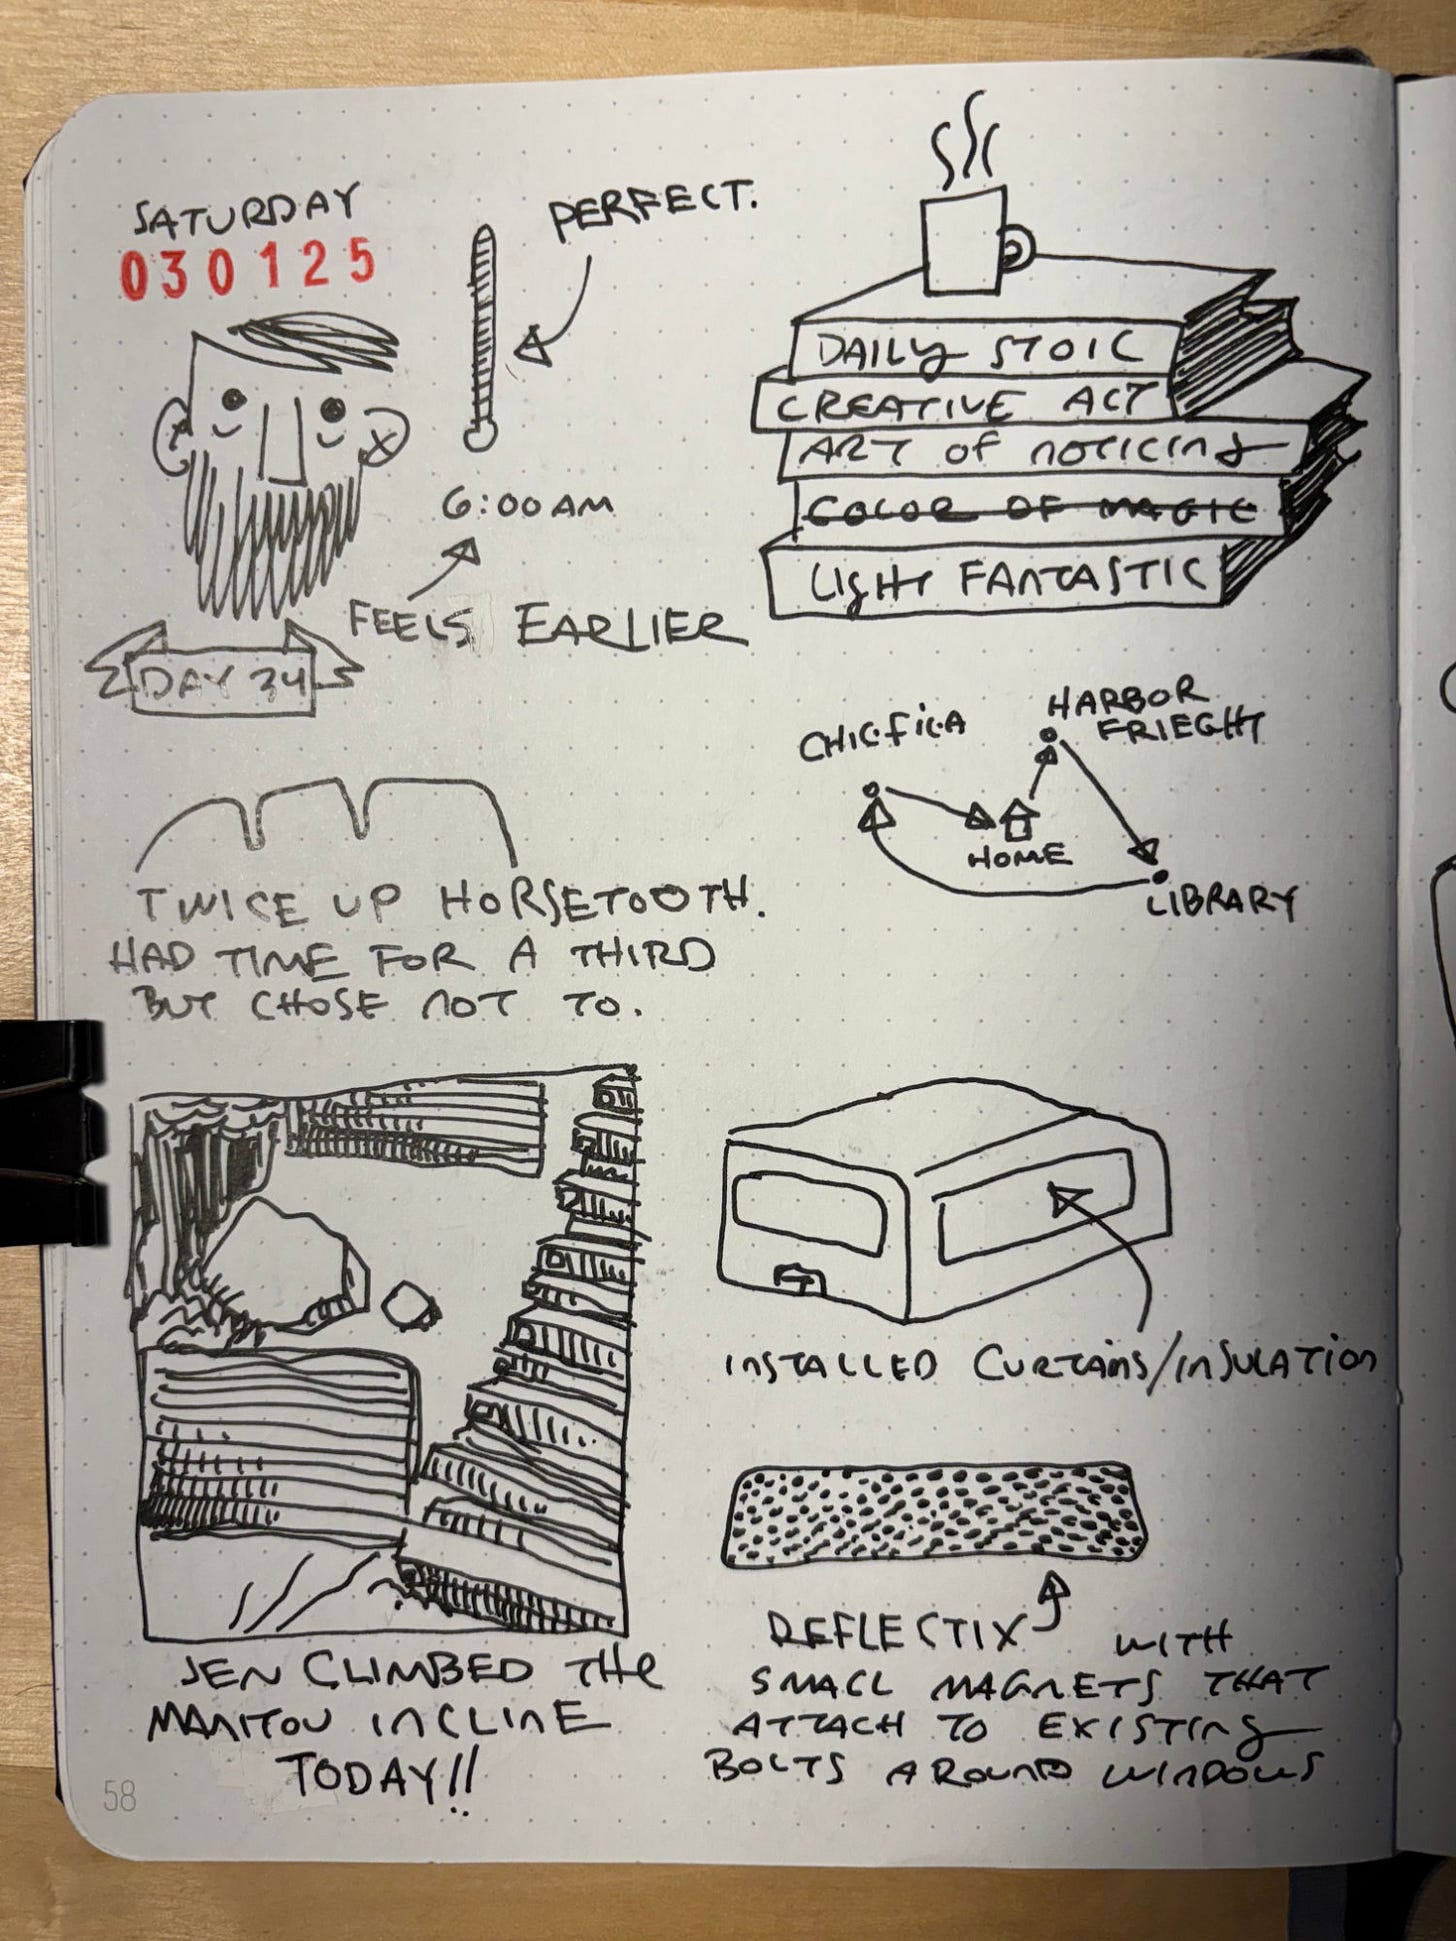 SATURDAY
030125
PERFECT.
6:00AM
FEELS EARLIER
DAY 34
DAILY STOIC
CREATIVE ACT
ART OF NOTICING
COLOR OF MAGIC
LIGHT FANTASTIC
CHIC·FIL·A
HARBOR
FRIEGHT
HOME
LIBRARY
TWICE UP HORSETOOTH.
HAD TIME FOR A THIRD
BUT CHOSE NOT TO.
JEN CLIMBED THE
MANITOU INCLINE
TODAY!!
INSTALLED CURTAINS/INSULATION
REFLECTIX WITH
SMALL MAGNETS THAT
ATTACH TO EXISTING
BOLTS AROUND WINDOWS
58